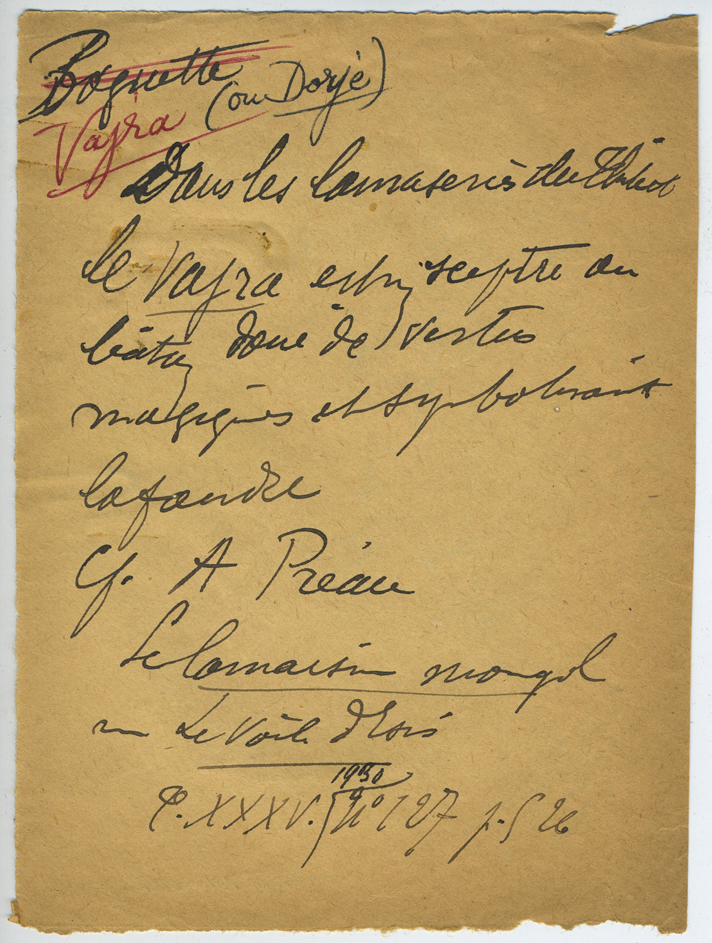 Baguette
(ou Dorjé)
Vajra
Dans les lamaseries du Thibet
le Vajra est un sceptre ou
bâton doué de vertus
magiques et symbolisant
la foudre
cf. A Préau
Le lamaisme mongol
in Le Voile d'Isis
1930
T. XXXV. N° 127 p. 526